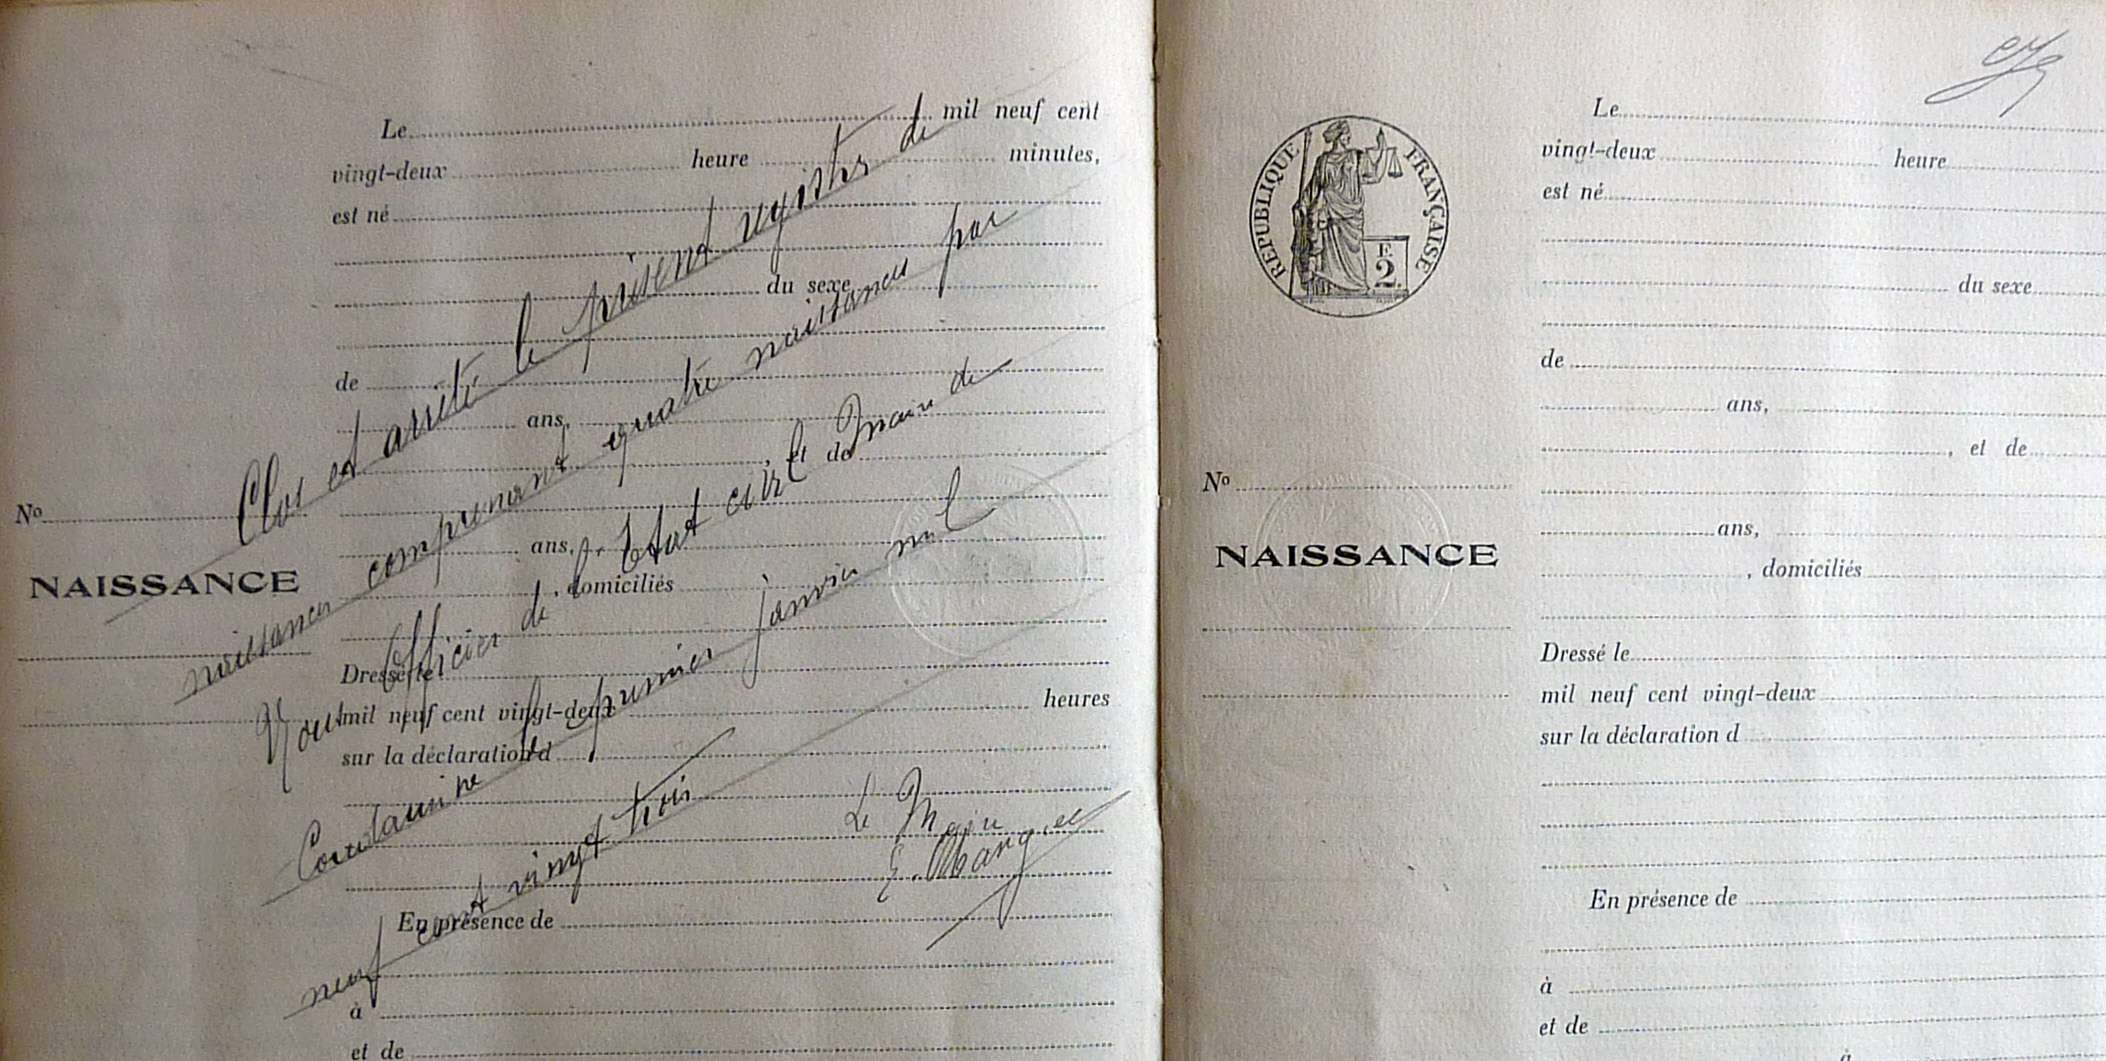 Le mil neuf cent
vingt-deux heure minutes,
est né
du sexe
de
ans,
, et de
No
ans,
NAISSANCE
, domiciliés
Dressé le
mil neuf cent vingt-deux heures
sur la déclaration d
En présence de
à
et de
Clos et arrêté le présent registre de
naissances comprenant quatre naissances par
Nous Officier de l'Etat civil Maire de
le premier janvier mil
neuf cent vingt trois
Le Maire
E.
RÉPUBLIQUE FRANÇAISE
F.
2
Le
vingt-deux heure
est né
du sexe
de
ans,
, et de
No
ans,
NAISSANCE
, domiciliés
Dressé le
mil neuf cent vingt-deux
sur la déclaration d
En présence de
à
et de
à